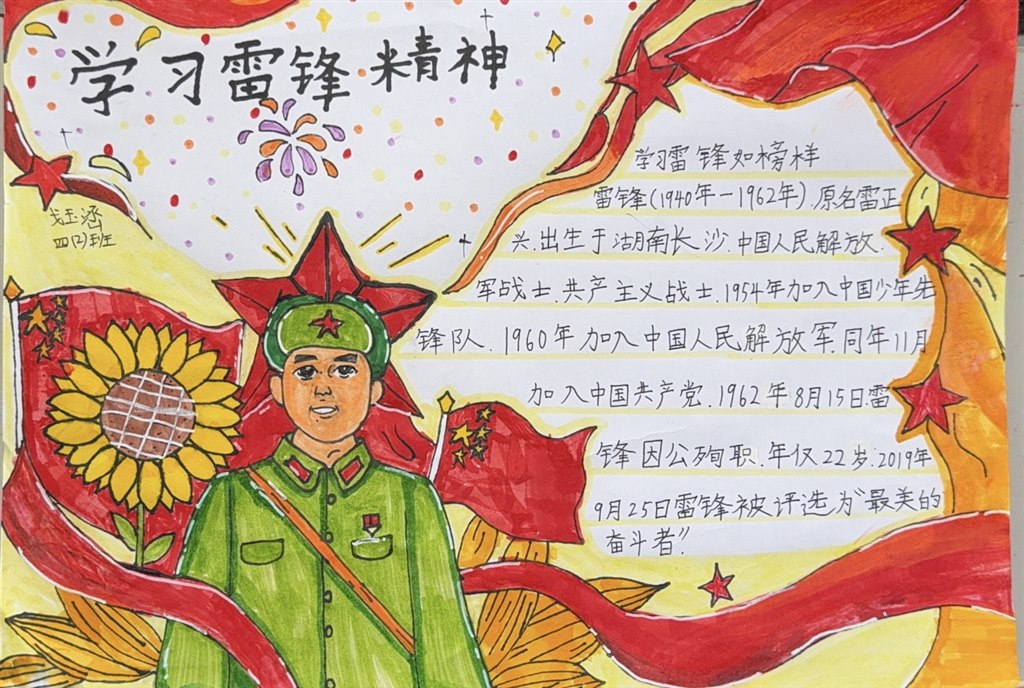 学习雷锋精神
四(2)班
学习雷锋好榜样
雷锋(1940年－1962年).原名雷正
兴.出生于湖南长沙.中国人民解放.
军战士.共产主义战士.1954年加入中国少年先
锋队.1960年加入中国人民解放军.同年11月
加入中国共产党.1962年8月15日.雷
锋因公殉职.年仅22岁.2019年
9月25日雷锋被评选为“最美的
奋斗者”.